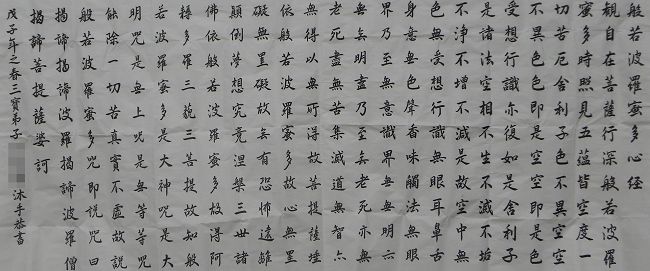 般若波羅蜜多心經
觀自在菩薩行深般若波羅
蜜多時照見五蘊皆空度一
切苦厄舍利子色不異空空
不異色色即是空空即是色
受想行識亦復如是舍利子
是諸法空相不生不滅不垢
不淨不增不減是故空中無
色無受想行識無眼耳鼻舌
身意無色聲香味觸法無眼
界乃至無意識界無無明亦
無無明盡乃至無老死亦無
老死盡無苦集滅道無智亦
無得以無所得故菩提薩埵
依般若波羅蜜多故心無罣
礙無罣礙故無有恐怖遠離
顛倒夢想究竟涅槃三世諸
佛依般若波羅蜜多故得阿
耨多羅三藐三菩提故知般
若波羅蜜多是大神咒是大
明咒是無上咒是無等等咒
能除一切苦真實不虛故說
般若波羅蜜多咒即說咒曰
揭諦揭諦波羅揭諦波羅僧
揭諦菩提薩婆訶
戊子年之春三寶弟子 沐手恭書